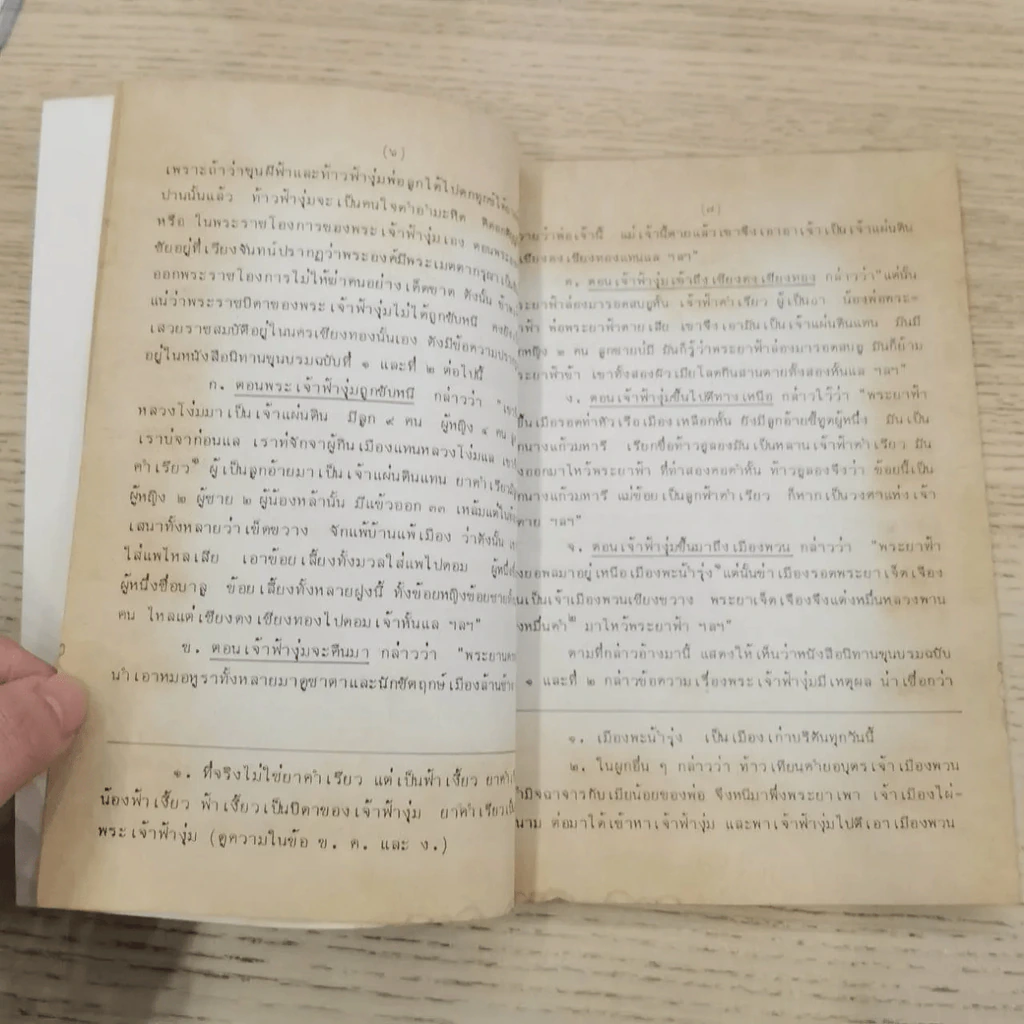 (๖)
เพราะถ้าว่าขุนผีฟ้าและท้าวฟ้างุ่มพ่อลูกได้ไปตกทุกข์ได้
ปานนั้นแล้ว ท้าวฟ้างุ่มจะเป็นคนใจดำอำมะหิต คิดอง
หรือ ในพระราชโองการของพระเจ้าฟ้างุ่มเอง ตอนพระองค์
ชัยอยู่ที่เวียงจันทน์ปรากฏว่าพระองค์มีพระเมตตากรุณา
ออกพระราชโองการไม่ให้ฆ่าคนอย่างเด็ดขาด ดังนั้น
แน่ว่าพระราชบิดาของพระเจ้าฟ้างุ่มไม่ได้ถูกขับหนี
เสวยราชสมบัติอยู่ในนครเชียงทองนั้นเอง ดังมีข้อความ
อยู่ในหนังสือนิทานขุนบรมฉบับที่ ๑ และที่ ๒ ต่อไปนี้
ก. ตอนพระเจ้าฟ้างุ่มถูกขับหนี กล่าวว่า
หลวงโง่มมาเป็นเจ้าแผ่นดิน มีลูก ๙ คน ผู้หญิง ๔ คน
เราบ่จาก่อนแล เราท่จักจาผู้กินเมืองแทนหลวงโง่มแล
คำเรียว๑ ผู้เป็นลูกอ้ายมาเป็นเจ้าแผ่นดินแทน ยาคำเรียว
ผู้หญิง ๒ ผู้ชาย ๒ ผู้น้องหล้านั้น มีแข้วออก ๓๓ เหล้มแต่ใน
เสนาทั้งหลายว่าเข็ดขวาง จักแพ้บ้านแพ้เมือง ว่าดังนั้น
ใส่แพไหลเสีย เอาข้อยเลี้ยงทั้งมวลใส่แพไปตอม
ผู้หนึ่งชื่อบาลู ข้อยเลี้ยงทั้งหลายฝูงนี้ ทั้งข้อยหญิงข้อยชาย
คน ไหลแต่เชียงดงเชียงทองไปตอมเจ้าหั้นแล ฯลฯ"
ข. ตอนเจ้าฟ้างุ่มจะคืนมา กล่าวว่า "พระยานคร
นำเอาหมอหูราทั้งหลายมาดูชาตาและนักขัตฤกษ์เมืองล้านช้าง
๑. ที่จริงไม่ใช่ยาคำเรียว แต่เป็นฟ้าเงี้ยว ยาคำ
น้องฟ้าเงี้ยว ฟ้าเงี้ยวเป็นบิดาของเจ้าฟ้างุ่ม ยาคำเรียว
พระเจ้าฟ้างุ่ม (ดูความในข้อ ข. ค. และ ง.)
(๗)
ว่าพ่อเจ้านี้ แม่เจ้านี้ตายแล้วเขาจึงเอาอาเจ้าเป็นเจ้าแผ่นดิน
เชียงดงเชียงทองแทนแล ฯลฯ"
ค. ตอนเจ้าฟ้างุ่มเข้าถึงเชียงดงเชียงทอง กล่าวว่า "แต่นั้น
ระยาฟ้าล่องมารอดสบอูหั้น เจ้าฟ้าคำเรียว ผู้เป็นอา น้องพ่อพระ-
ฟ้า พ่อพระยาฟ้าตายเสีย เขาจึงเอามันเป็นเจ้าแผ่นดินแทน มันมี
กหญิง ๒ คน ลูกชายบ่มี มันก็รู้ว่าพระยาฟ้าล่องมารอดสบอู มันก็ย้าม
ระยาฟ้าข้า เขาทั้งสองผัวเมียโลดกินสานตายทั้งสองหั้นแล ฯลฯ"
ง. ตอนเจ้าฟ้างุ่มขึ้นไปตีทางเหนือ กล่าวไว้ว่า "พระยาฟ้า
ขึ้นเมือรอดท่าคัวเรือเมืองเหลือกหั้น ยังมีลูกอ้ายชี้ทูดผู้หนึ่ง มันเป็น
กนางแก้วมหารี เรียกชื่อท้าวอูลองมันเป็นหลานเจ้าฟ้าคำเรียว มัน
งออกมาไหว้พระยาฟ้า ที่ท่าสองคอคำหั้น ท้าวอูลองจึงว่า ข้อยนี้เป็น
กนางแก้วมหารี แม่ข้อยเป็นลูกฟ้าคำเรียว ก็หากเป็นวงศาแห่งเจ้า
ตาย ฯลฯ"
จ. ตอนเจ้าฟ้างุ่มขึ้นมาถึงเมืองพวน กล่าวว่า "พระยาฟ้า
งยอพลมาอยู่เหนือเมืองพะน้ำรุ่ง๑ แต่นั้นข่าวเมืองรอดพระยาเจ็ดเจือง
นเป็นเจ้าเมืองพวนเชียงขวาง พระยาเจ็ดเจืองจึงแต่งหมื่นหลวงพาน
งหมื่นคำ๒ มาไหว้พระยาฟ้า ฯลฯ"
ตามที่กล่าวอ้างมานี้ แสดงให้เห็นว่าหนังสือนิทานขุนบรมฉบับ
๑ และที่ ๒ กล่าวข้อความเรื่องพระเจ้าฟ้างุ่มมีเหตุผล น่าเชื่อกว่า
๑. เมืองพะน้ำรุ่ง เป็นเมืองเก่าบริคันทุกวันนี้
๒. ในผูกอื่น ๆ กล่าวว่า ท้าวเทียนคำยอบุตรเจ้าเมืองพวน
มิจฉาจารกับเมียน้อยของพ่อ จึงหนีมาพึ่งพระยาเพา เจ้าเมืองไผ่-
นาม ต่อมาได้เข้าหาเจ้าฟ้างุ่ม และพาเจ้าฟ้างุ่มไปตีเอาเมืองพวน